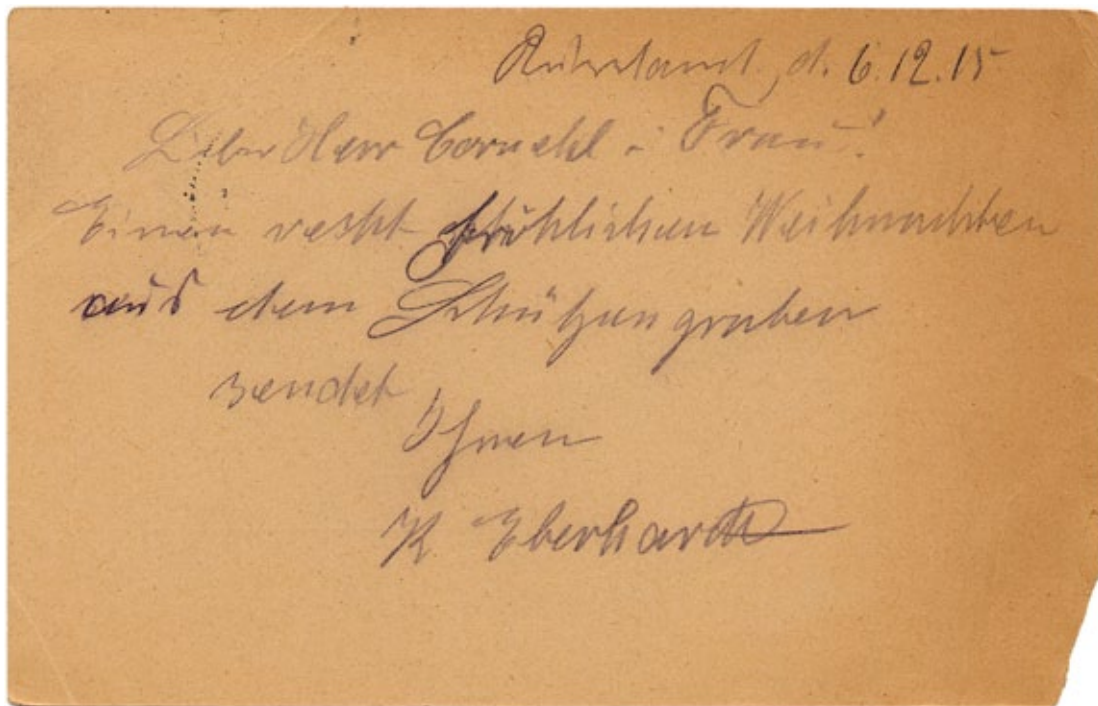 Russland, d. 6.12.15
Lieber Herr Cornehl u. Frau!
Einen recht fröhlichen Weihnachten
aus dem Schützengraben
sendet
Ihnen
K Eberhardt